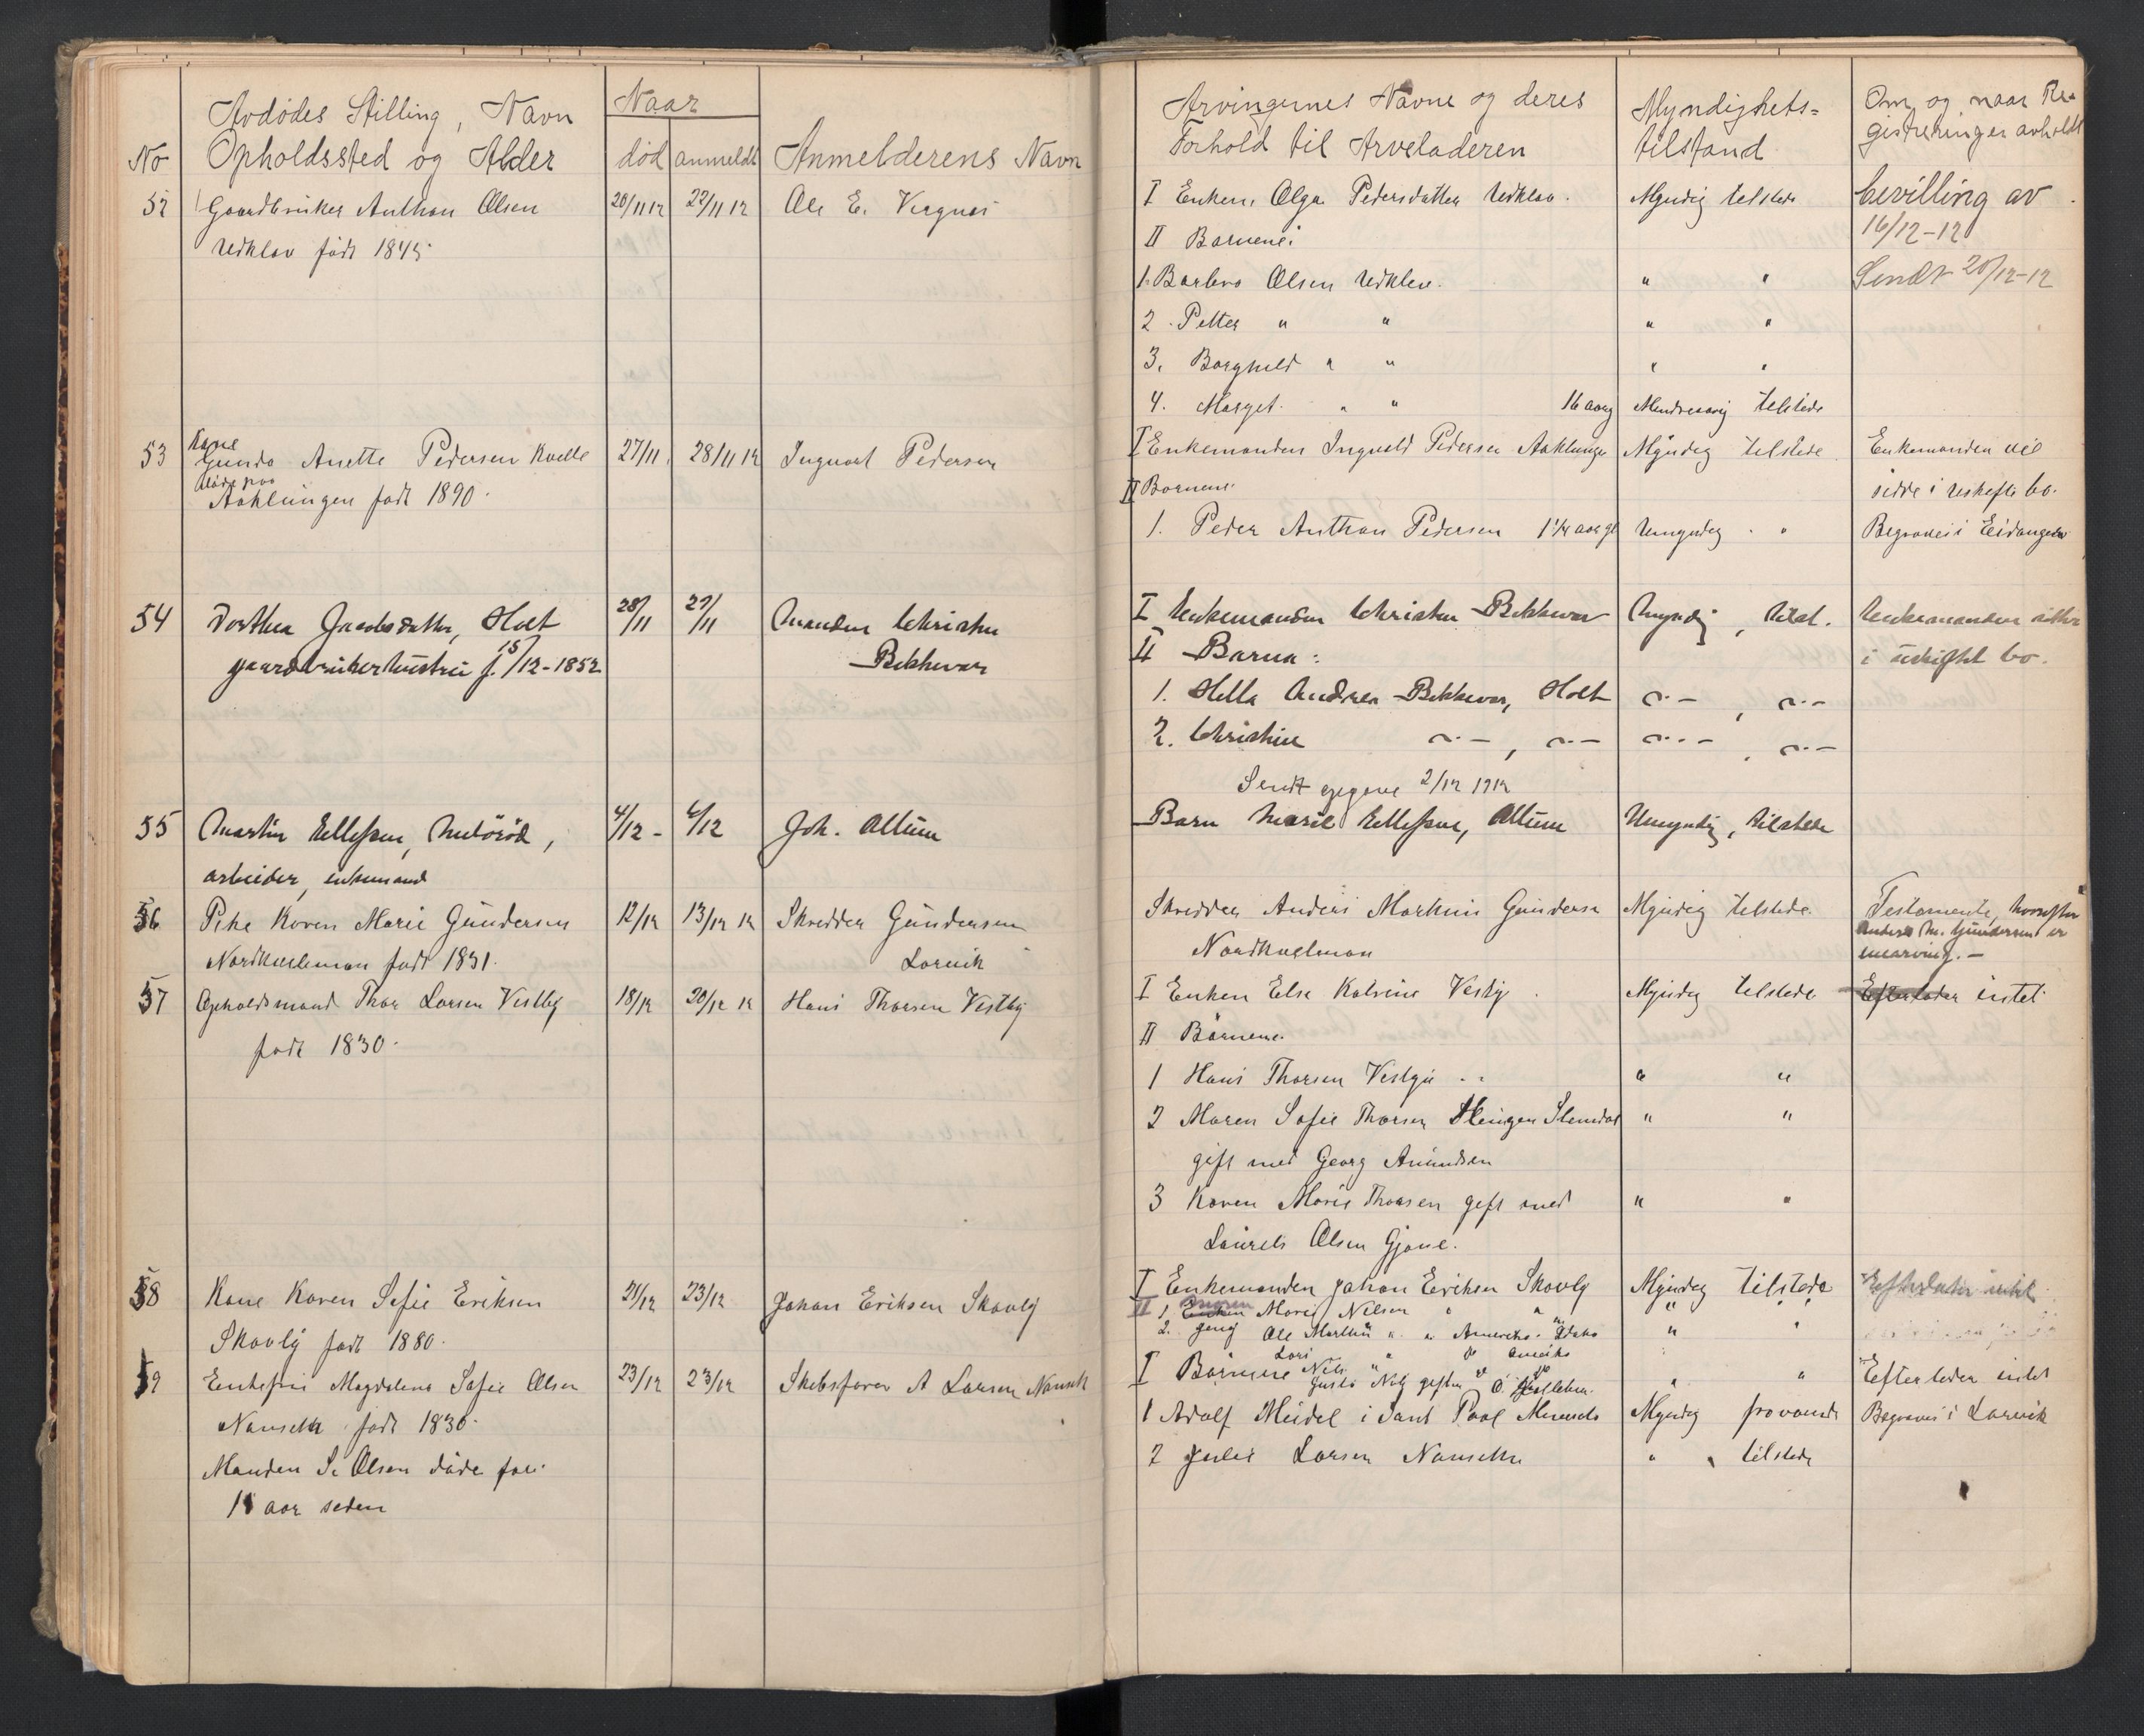 No
Avdødes Stilling, Navn
Opholdssted og Alder
Naar
død anmeldt
Anmelderens Navn
52 Gaardbruker Anthon Olsen 20/11 12 22/11 12 Ole E.
Uvdklev født 1845.
53 Kone
Gunda Anette Pedersen Kvelle 27/11. 28/11 12 Ingvart Pedersen
døde paa
Aaklungen født 1890.
54 Dorthea Jacobsdatter, Holt 28/11 29/11 Manden Christen
gaardbrukerhustru f. 15/12-1852 Bekkevar
55 Martin Ellefsen, 4/12 - 6/12 Joh. Allum
arbeider, enkemand
56 Pike Karen Marie Gundersen 12/12 13/12 12 Skredder Gundersen
født 1831. Larvik
57 Opholdsmand Thor Larsen Vestby 18/12 20/12 12 Hans Thorsen Vestby
født 1830.
58 Kone Karen Sofie Eriksen 21/12 23/12 Johan Eriksen Skovly
Skovly født 1880.
59 Enkefru Magdalena Sofie Olsen 23/12 23/12 Skibsfører A Larsen Nanseth
Nanseth født 1836.
Manden S. Olsen døde for
aar siden
Arvingernes Navne og deres
Forhold til Arveladeren
Myndighets=
tilstand
Om og naar Re=
gistreringer avholdt
I Enken, Olga Pedersdatter Uvdklev. Myndig tilstede bevilling av
II Barnene: 16/12-12
1. Barbro Olsen Uvdklev. " " Sendt 20/12-12
2. Petter " " " "
3. Borghild " " " "
4. Marget. " " 16 aarg Mindreaarig tilstede
I Enkemanden Ingvald Pedersen Aaklungen Myndig tilstede Enkemanden vil
II Barnene: sidde i uskiftet bo.
1. Peder Anthon Pedersen 1 1/2 aar gl Umyndig " Begraves i Eidanger
I Enkemanden Christen Bekkevar Myndig, tilst. Enkemanden sitter
II Barna: i uskiftet bo.
1. Andrea Bekkevar, Holt —"—, —"—
2. Christine —"—, —"— —"—, —"—
Sendt opgave 2/12 1912
Barn Marie Ellefsen, Allum Umyndig, tilstede
Skredder Anders Markus Gundersen Myndig tilstede. Testamente, hvorefter
Anders M. Gundersen er
enearving. —
I Enken Else Katrine Vestby Myndig tilstede Efterlader intet
II Børnene.
1 Hans Thorsen Vestby " "
2 Maren Sofie Thorsen " "
gift med Georg Amundsen
3 Karen Marie Thorsen gift med " "
Laurits Olsen Gjone.
I Enkemanden Johan Eriksen Skovly Myndig tilstede Efterlader intet
II 1. Moren Marie Nilsen " " " "
2. Ole Martin " i Amerika Idaho " "
Lars " do Amerika
Nils " do do
I Børnene " " Efterlader intet
1 Adolf Meidel i Sant Paal Myndig fravænde Begraves i Larvik
2 Julie Larsen Nanseth " " tilstede